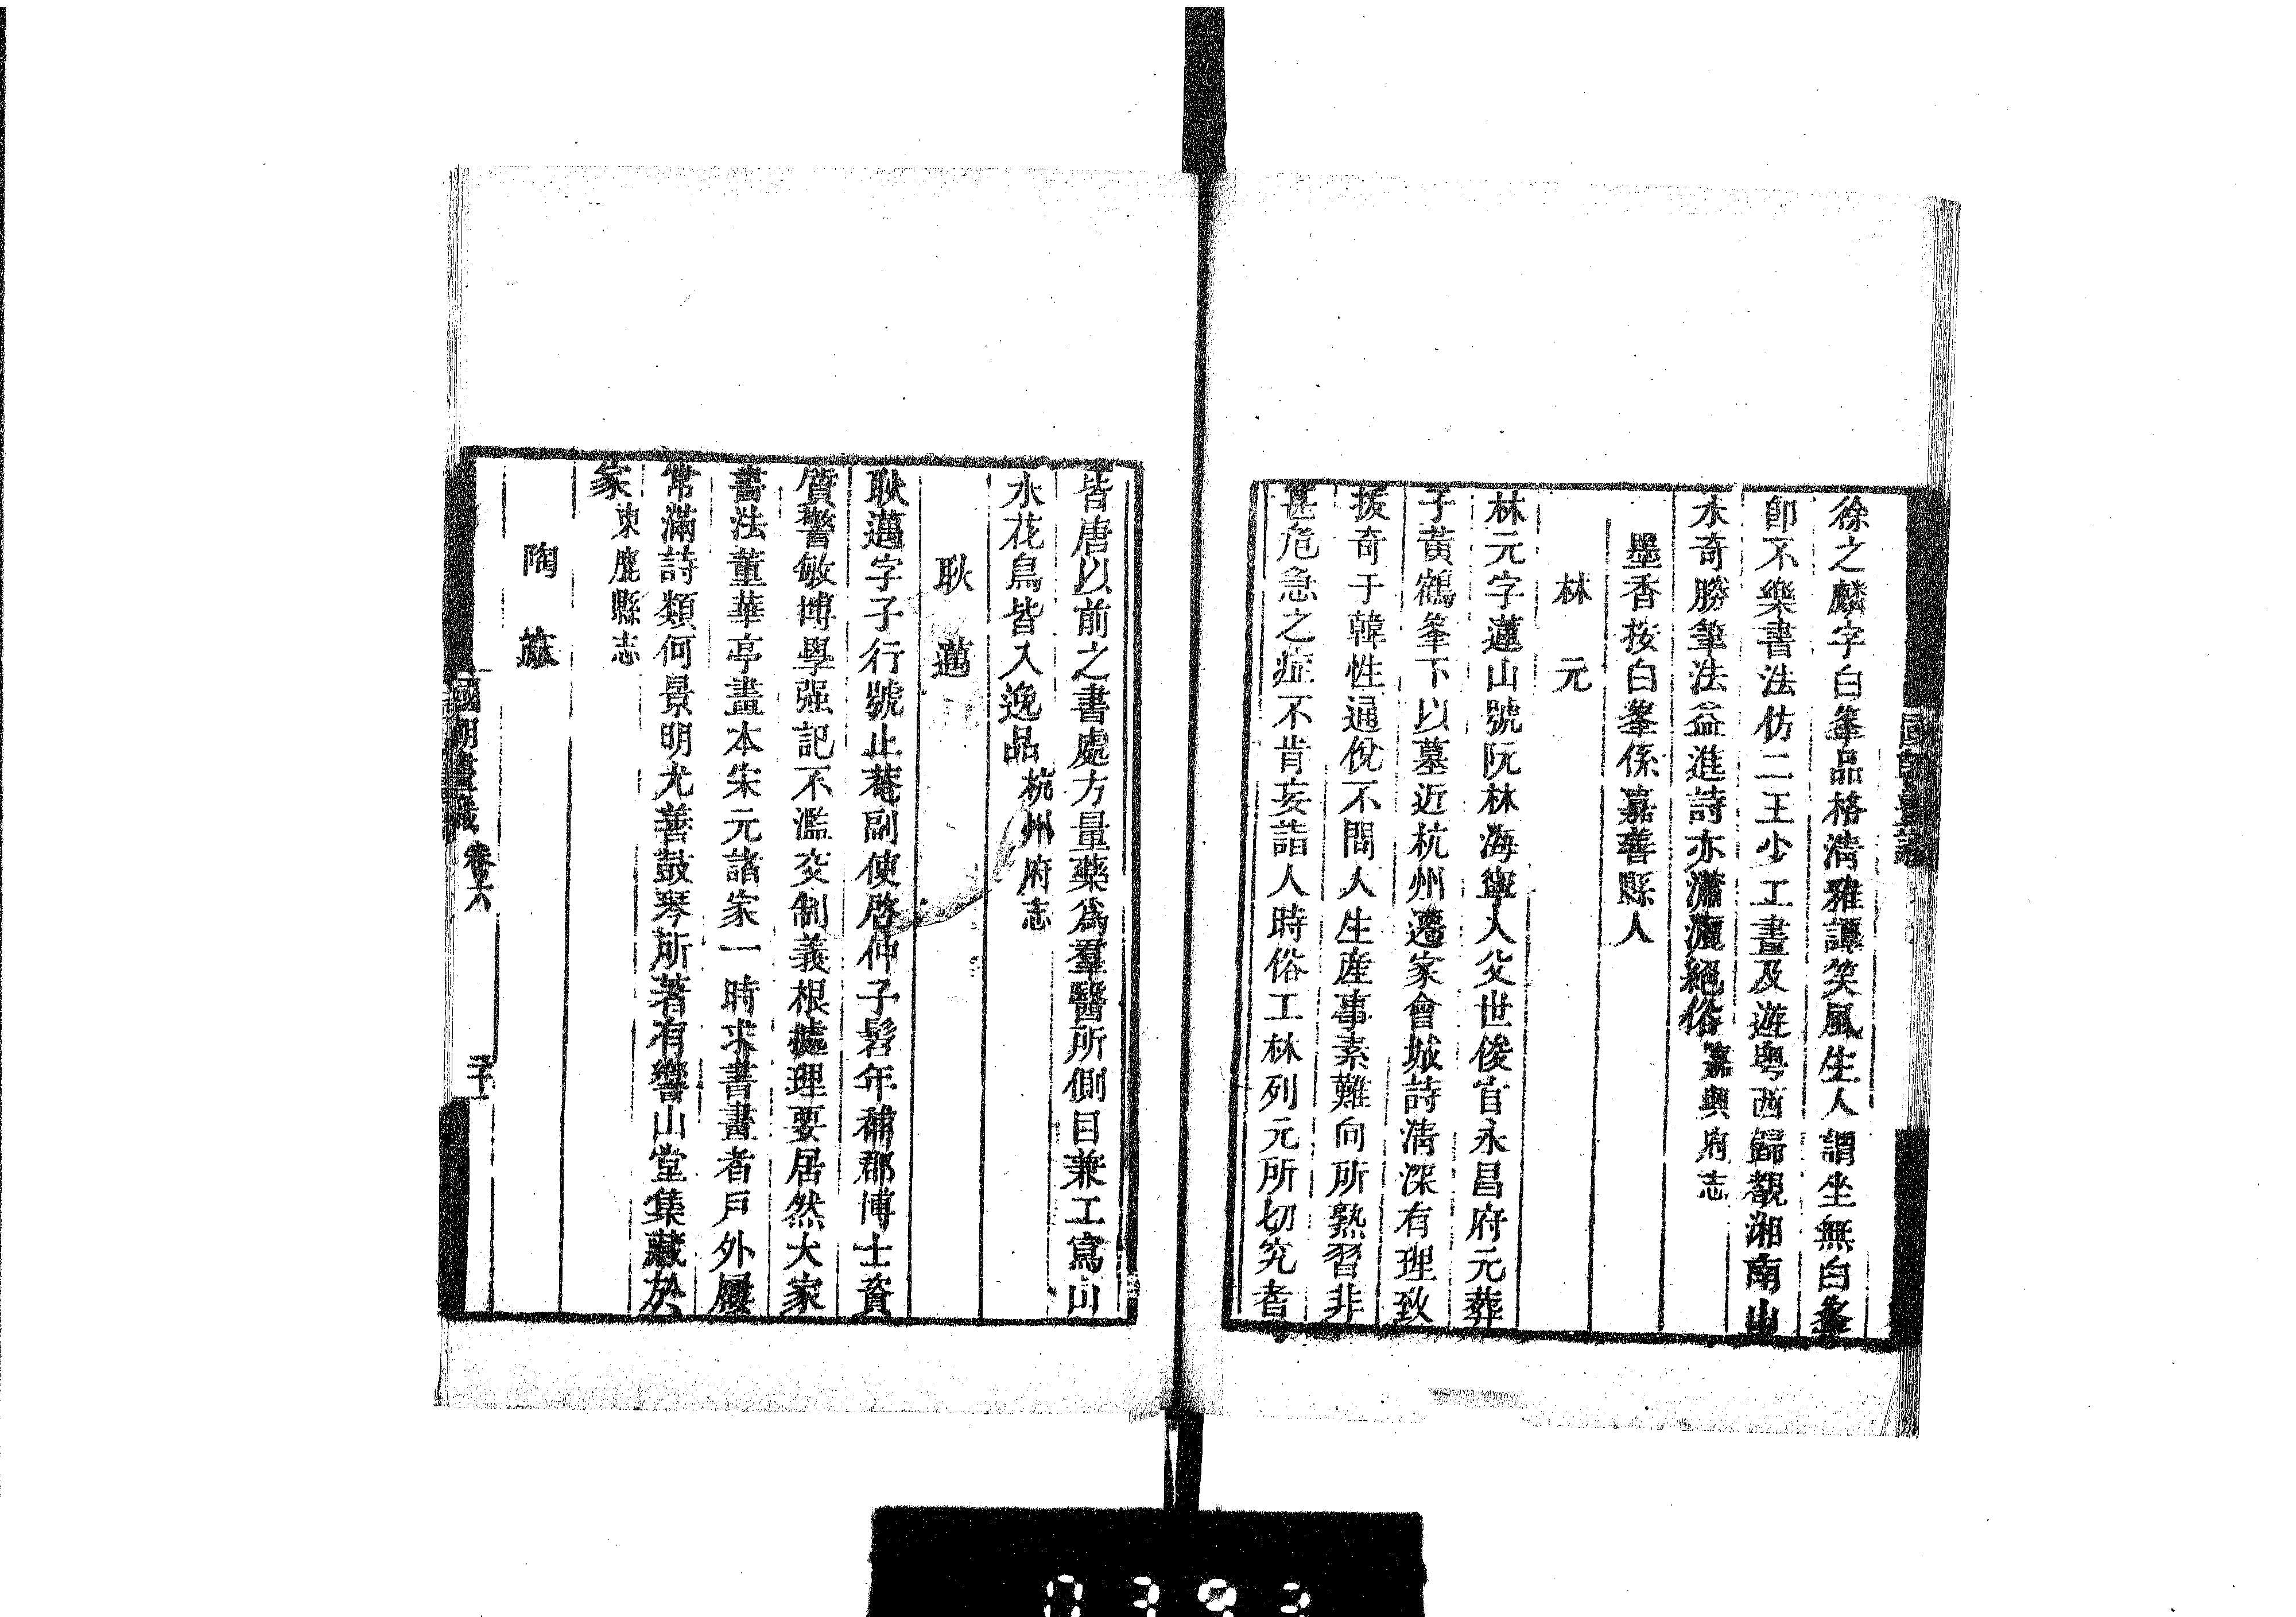 徐之麟字白峯品格淸雅譚笑風生人謂坐無白峯
卽不樂書法仿二王少工畫及遊粤西歸覩湘南山
水奇勝筆法益進詩亦瀟灑絕俗嘉興府志
墨香按白峯係嘉善縣人
林元
林元字蓮山號阮林海寧人父世俊官永昌府元葬
子黃鶴峯下以墓近杭州遷家會城詩淸深有理致
拔奇于韓性通侻不問人生産事素難向所熟習非
甚危急之症不肯妄詣人時俗工林列元所切究者
皆唐以前之書處方量藥爲羣醫所側目兼工寫山
水花鳥皆入逸品杭州府志
耿邁
耿邁字子行號止菴副使啓仲子髫年補郡博士資
質警敏博學强記不濫交制義根據理要居然大家
書法董華亭畫本宋元諸家一時求書畫者戶外屨
常滿詩類何景明尤善鼓琴所著有響山堂集藏於
家束鹿縣志
陶
國朝畫識 卷六
0393